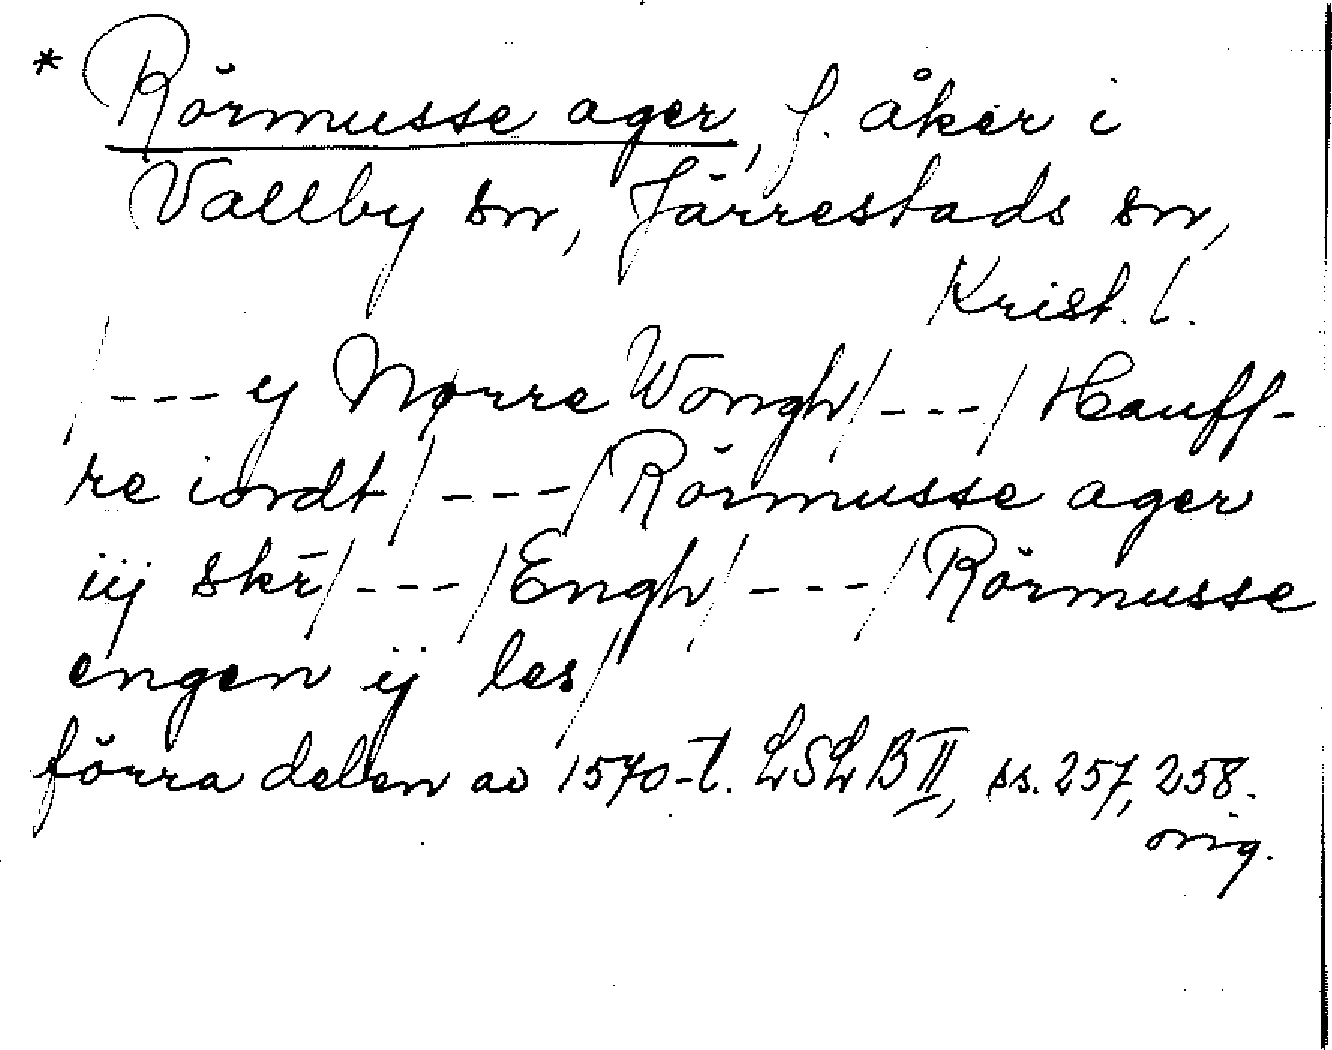 * Rörmusse ager, f. åker i
Vallby sn, Järrestads sn,
Krist. l.
/---y Nørre Wongh/---/Hauff-
re iordt/---/Rörmusse ager
iij skr̄/---/Engh/---/Rörmusse
engen ij les/
förra delen av 1570-t. LSLB II, ss. 257, 258.
orig.